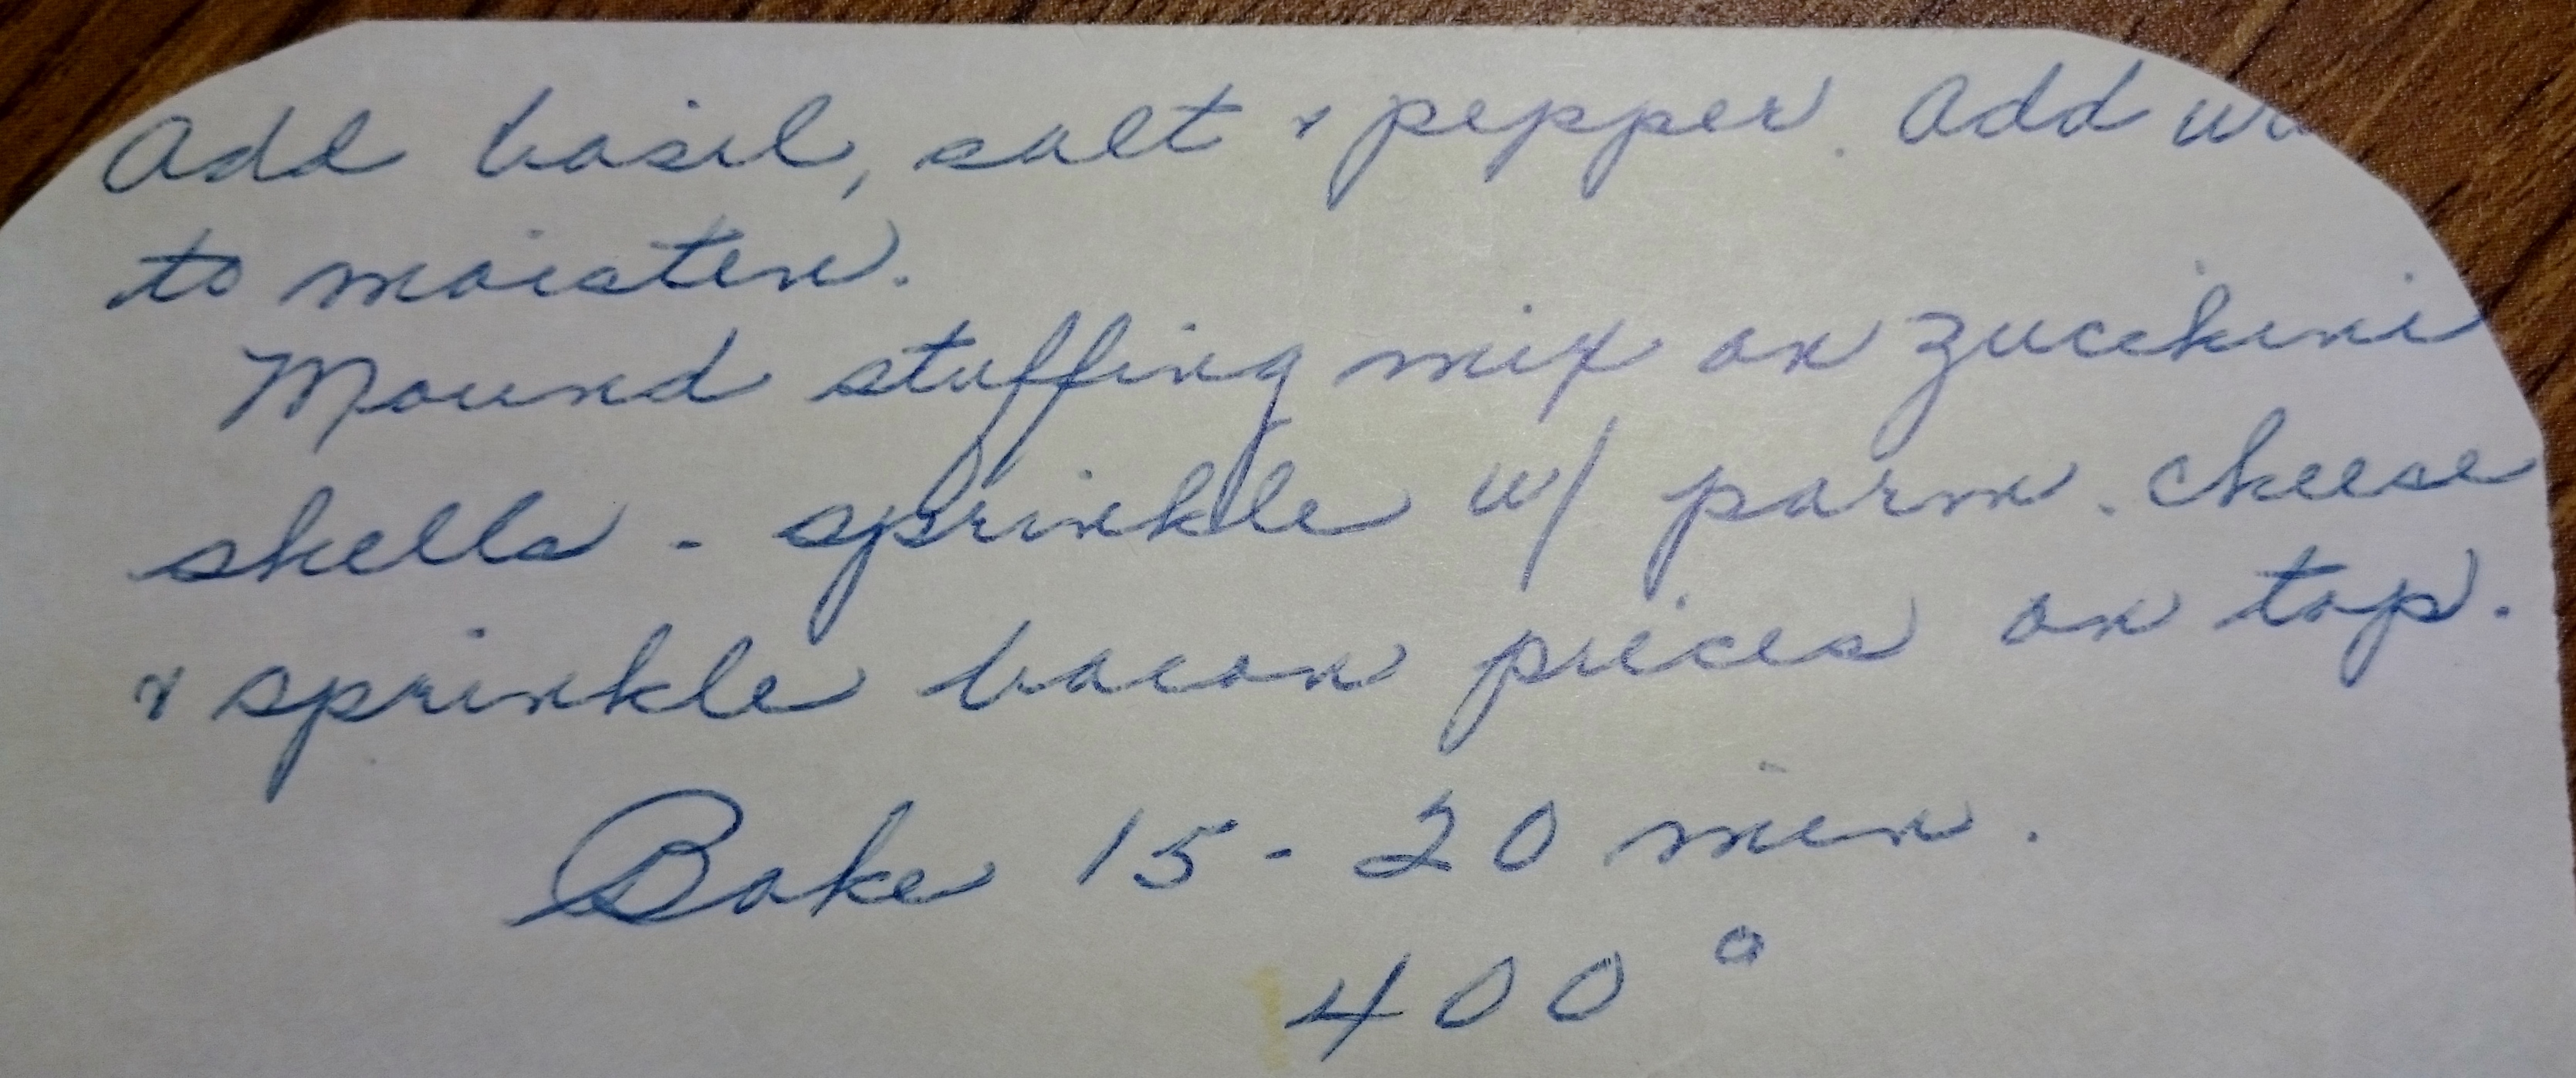 Add basil, salt & pepper. Add
to moisten.
Mound stuffing mix on zucchini
shells - sprinkle w/ parm. cheese
& sprinkle bacon pieces on top.
Bake 15-20 min.
400°